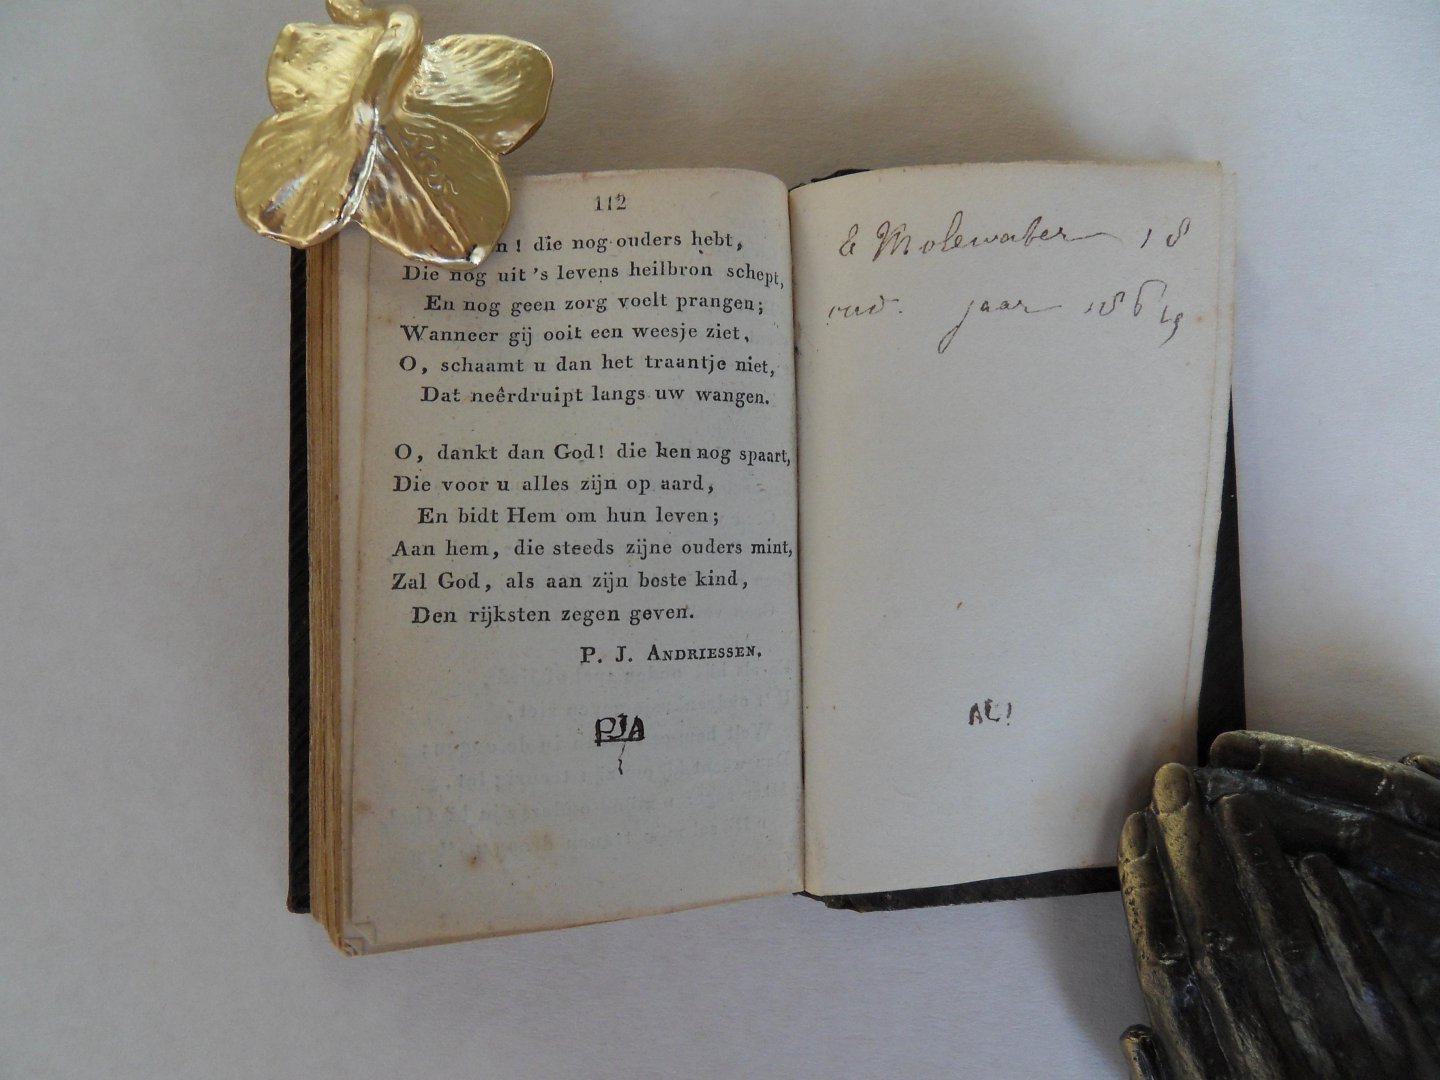 112
n! die nog ouders hebt,
Die nog uit 's levens heilbron schept,
En nog geen zorg voelt prangen;
Wanneer gij ooit een weesje ziet,
O, schaamt u dan het traantje niet,
Dat neêrdruipt langs uw wangen.
O, dankt dan God! die hen nog spaart,
Die voor u alles zijn op aard,
En bidt Hem om hun leven;
Aan hem, die steeds zijne ouders mint,
Zal God, als aan zijn beste kind,
Den rijksten zegen geven.
P. J. ANDRIESSEN.
PJA
E Molewater 18
oud. jaar 186